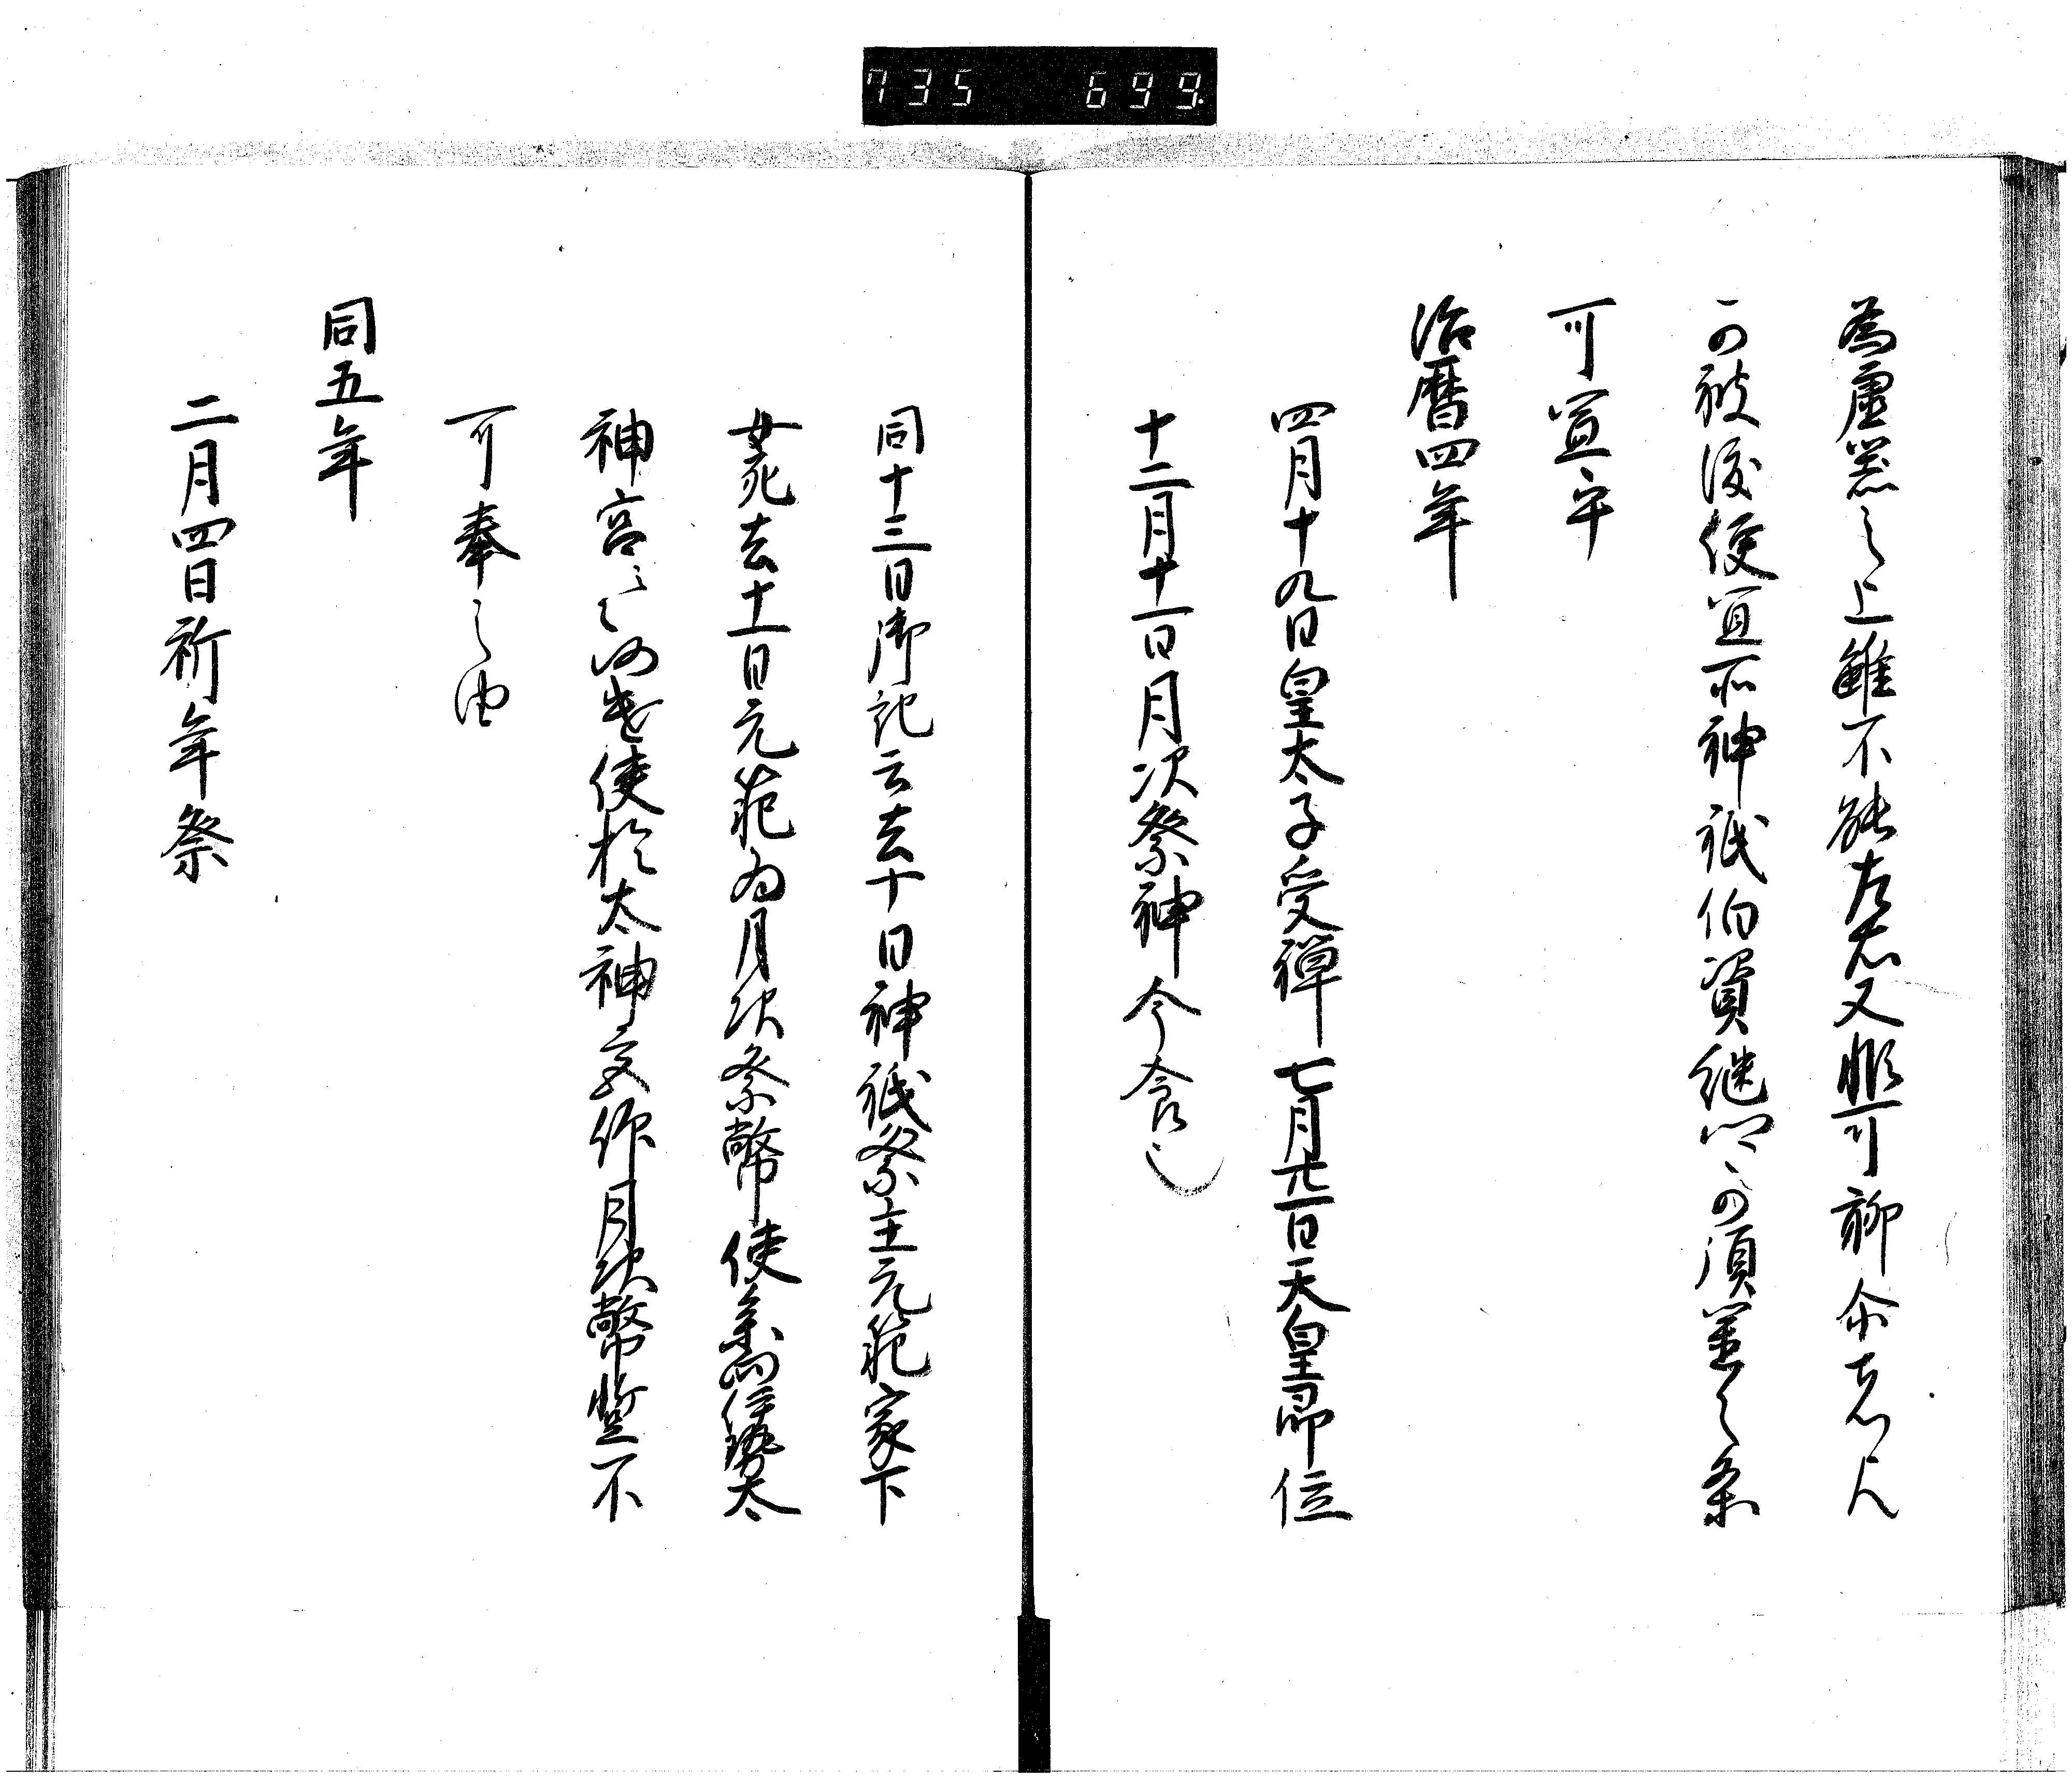 735 699
為虚器之上雖不能左右又非可聊尓者
可被後使宜不神祇伯資継可須置之条
可宣乎
治暦四年
四月十九日皇太子受禅 七月廿一日天皇即位
十二月十一日月次祭神今食
同十三日御記云去十日神祇祭主元範家下
女死去十一日元範為月次祭幣使参向伊勢太
神宮使於太神宮月次幣暫不
可奉之由
同五年
二月四日祈年祭